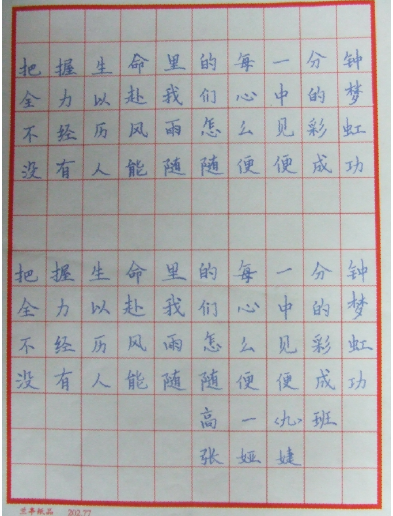 把握生命里的每一分钟
全力以赴我们心中的梦
不经历风雨怎么见彩虹
没有人能随随便便成功
把握生命里的每一分钟
全力以赴我们心中的梦
不经历风雨怎么见彩虹
没有人能随随便便成功
高一〈九〉班
张娅婕